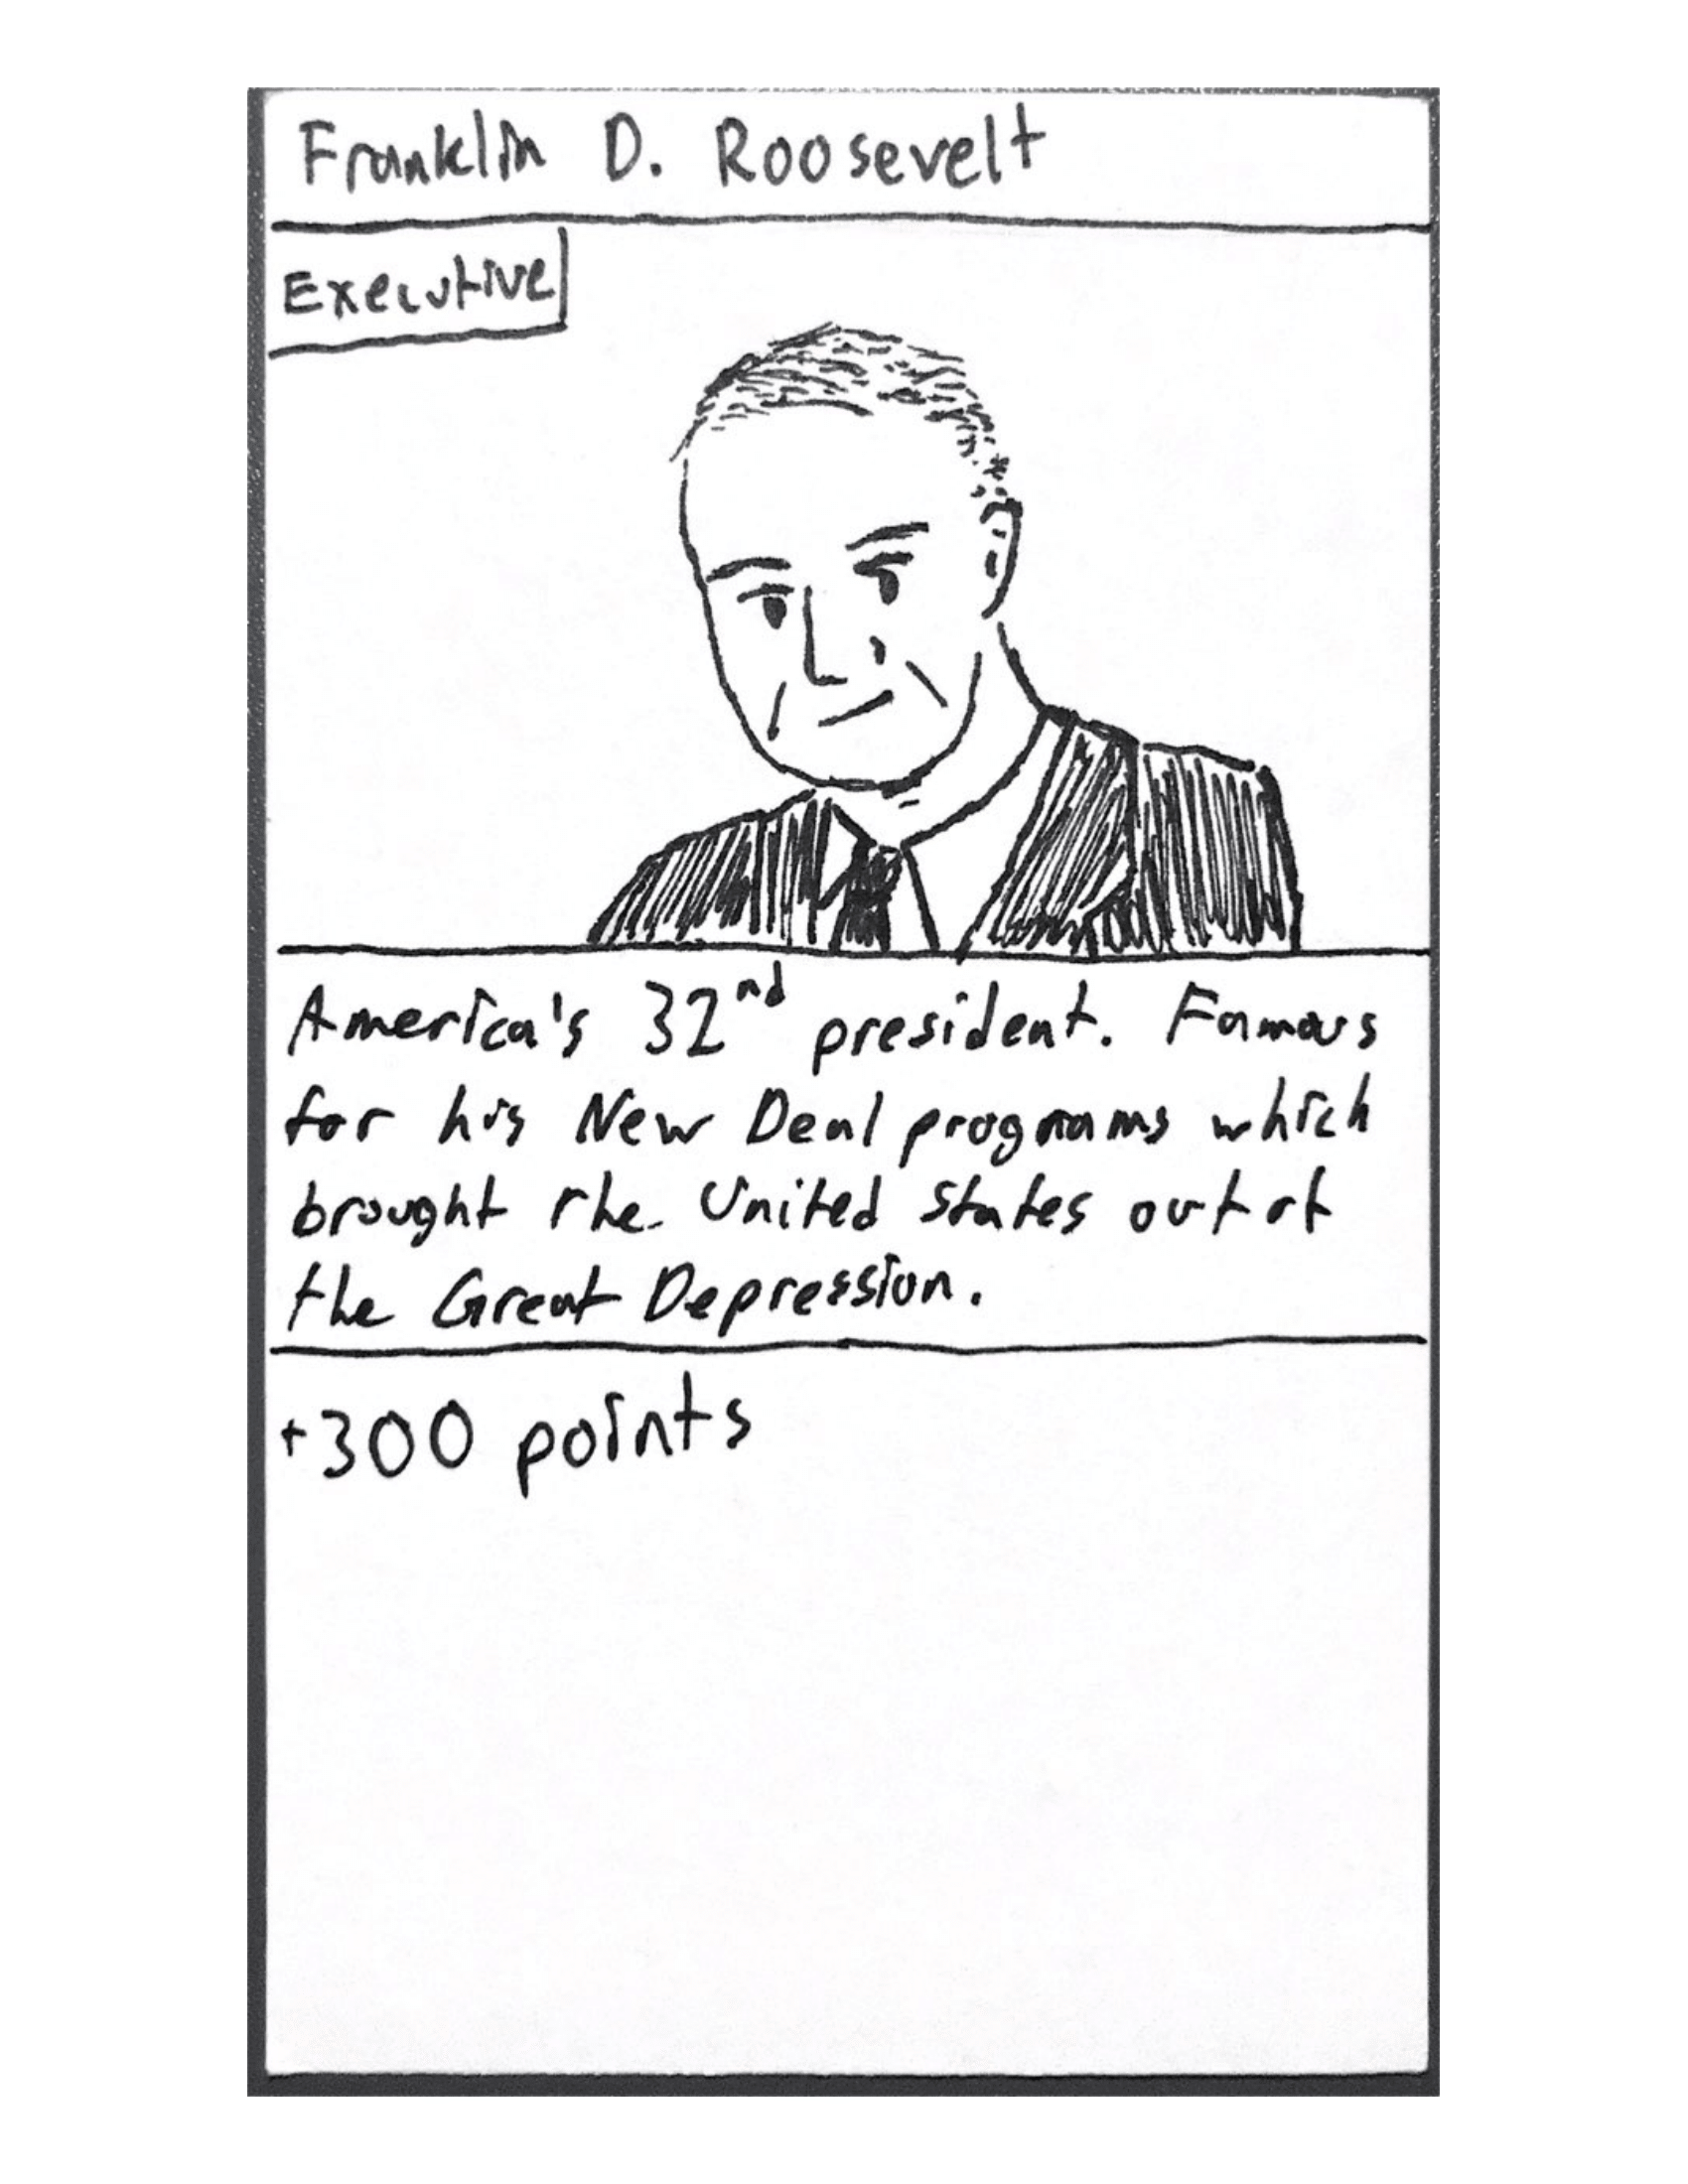 Franklin D. Roosevelt
Executive
America's 32nd president. Famous
for his New Deal programs which
brought the United States out of
the Great Depression.
+300 points